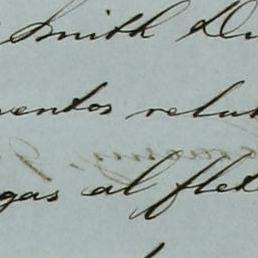 Smith Du
mentos relat
gas al flet